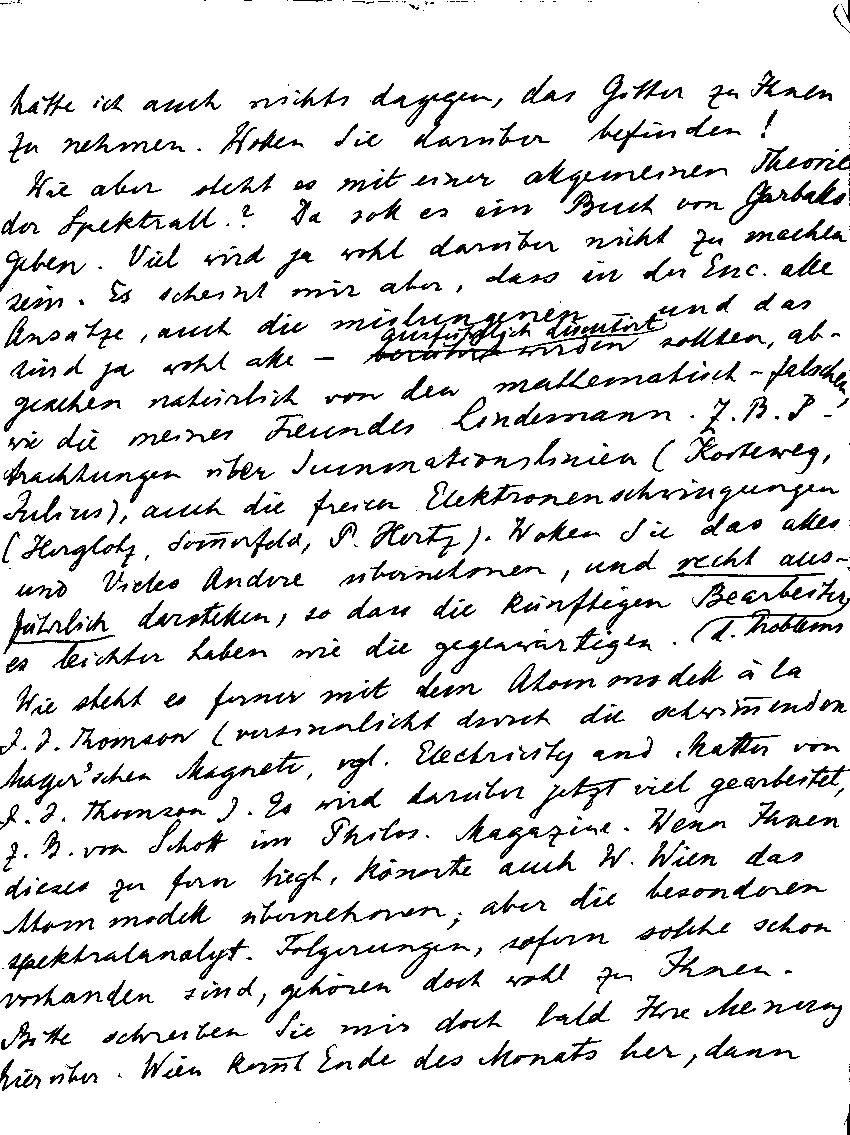 hätte ich auch nichts dagegen, das Gitter zu Ihnen
zu nehmen. Wollen Sie darüber befinden!
Wie aber steht es mit einer allgemeinen Theorie
der Spektrall.? Da soll es ein Buch von Garbasso
geben. Viel wird ja wohl darüber nicht zu machen
sein. Es scheint mir aber, dass in der Enc. alle
Ansätze, auch die mislungenen und das
ausführlich discutirt
sind ja wohl alle – berührt werden sollten, ab-
gesehen natürlich von den mathematisch-falschen,
wie die meines Freundes Lindemann. Z. B. B-
trachtungen über Summationslinien (Korteweg,
Julius), auch die freien Elektronenschwingungen
(Herglotz, Som̅erfeld, P. Hertz). Wollen Sie das alles
und Vieles Andere übernehmen, und recht aus-
führlich darstellen, so dass die künftigen Bearbeiter
d. Problems
es leichter haben wie die gegenwärtigen.
Wie steht es ferner mit dem Atommodell à la
J. J. Thomson (versinnlicht durch die schwim̅enden
Mayer'schen Magnete, vgl. Electricity and Matter von
J. J. Thomson). Es wird darüber jetzt viel gearbeitet,
z. B. von Schott im Philos. Magazine. Wenn Ihnen
dieses zu fern liegt, könnte auch W. Wien das
Atommodell übernehmen; aber die besonderen
spektralanalyt. Folgerungen, sofern solche schon
vorhanden sind, gehören doch wohl zu Ihnen.
Bitte schreiben Sie mir doch bald Ihre Meinung
hierüber. Wien kom̅t Ende des Monats her, dann